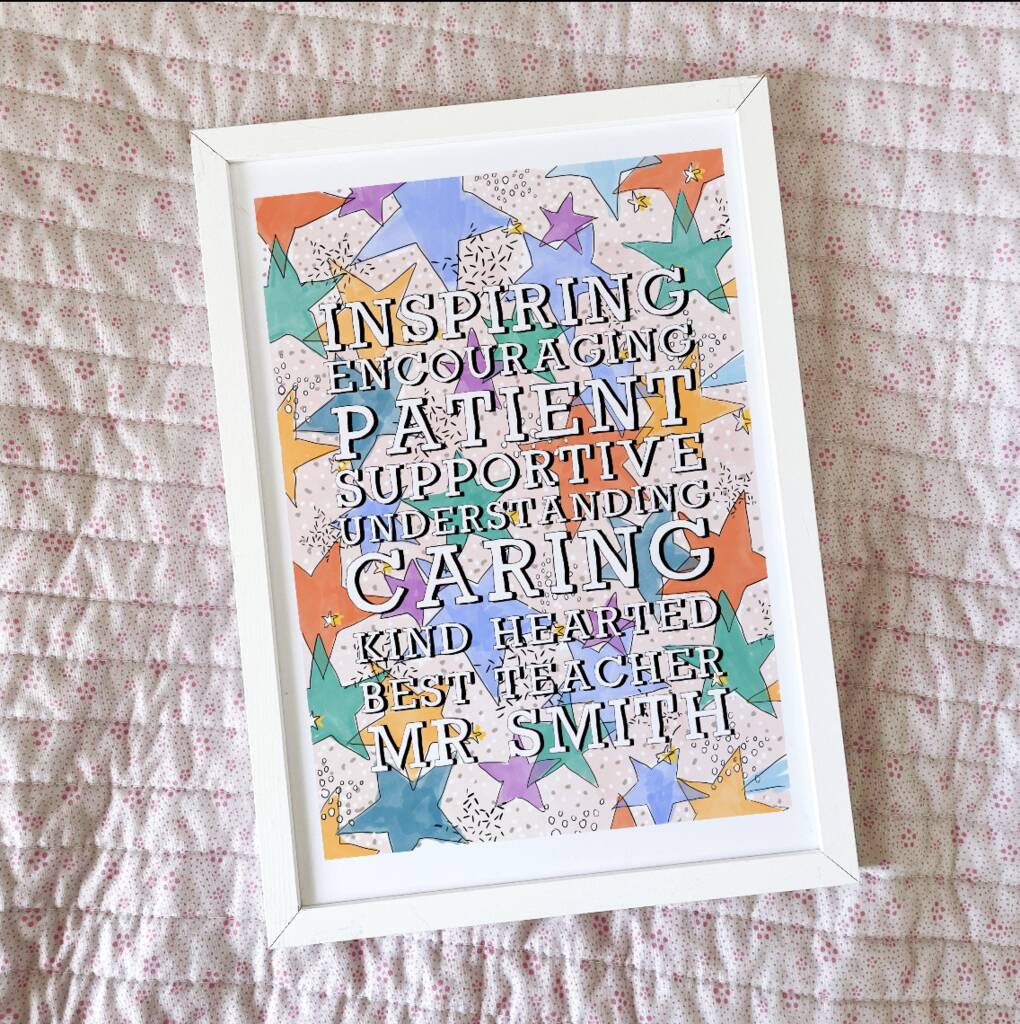 INSPIRING
ENCOURAGING
PATIENT
SUPPORTIVE
UNDERSTANDING
CARING
KIND HEARTED
BEST TEACHER
MR SMITH